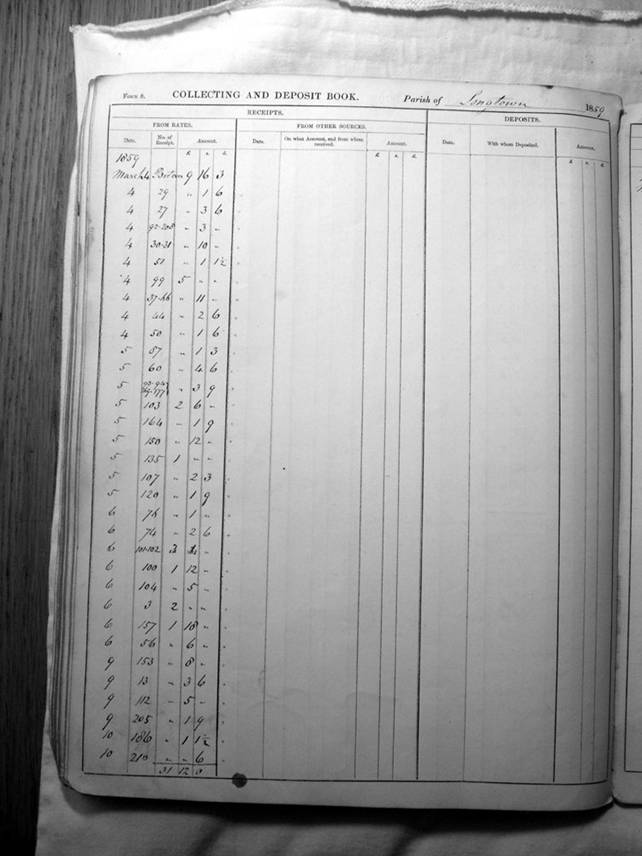 FORM 8. COLLECTING AND DEPOSIT BOOK. Parish of Longtown 1859
RECEIPTS. DEPOSITS.
FROM RATES. FROM OTHER SOURCES.
Date. No. of Receipt. Amount. Date. On what Account, and from whom received. Amount. Date. With whom Deposited. Amount.
£ s. d. £ s. d. £ s. d.
1859
March 4 9 16 3
4 29 " 1 6
4 27 " 3 6
4 " 3 -
4 30-31 " 10 -
4 51 " 1 1½
4 99 5 - -
4 " 11 -
4 44 " 2 6
4 50 " 1 6
5 57 " 1 3
5 60 " 4 6
5 " 3 9
5 103 2 6 -
5 164 " 1 9
5 150 " 12 -
5 135 1 - -
5 107 " 2 3
5 120 " 1 9
6 78 " 1 -
6 74 " 2 6
6 101-102 3 -
6 100 1 12 -
6 104 " 5 -
6 3 2 - -
6 157 1 18 -
6 56 " 6 -
9 153 " 8 -
9 13 " 3 6
9 112 " 5 -
9 205 " 1 9
10 186 " 1 1½
10 210 " " 6
31 12 0